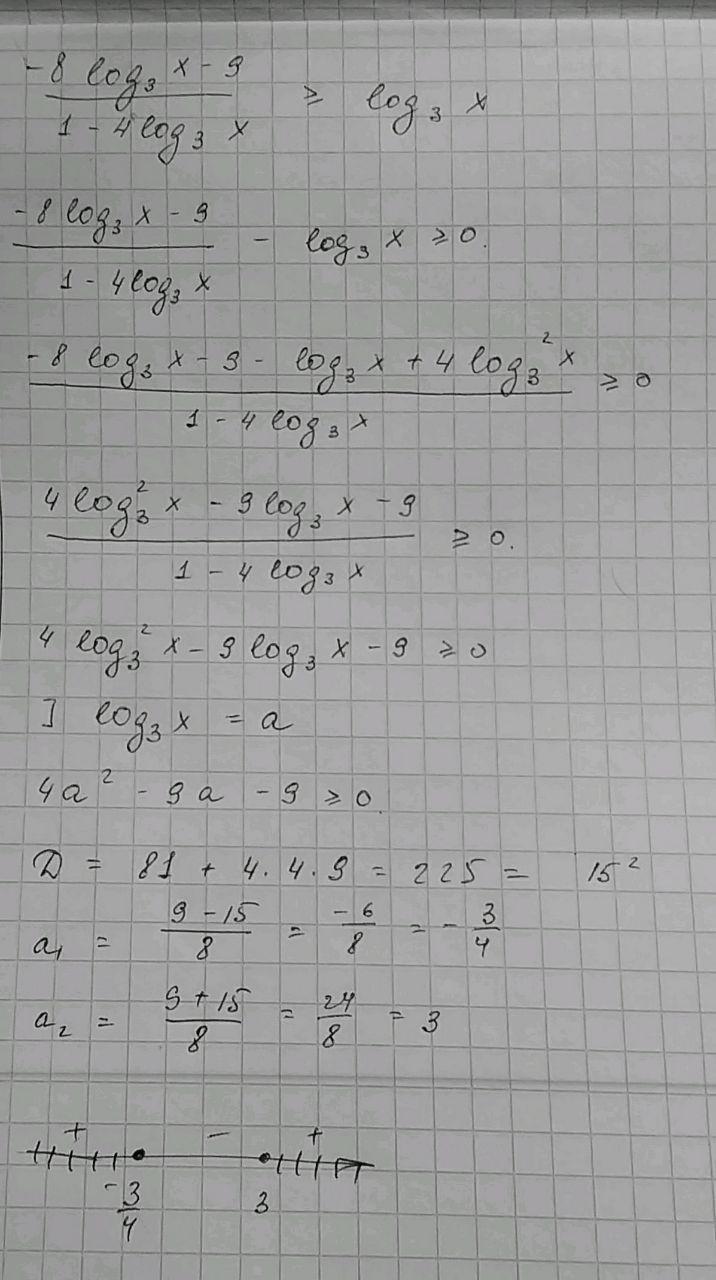 (-8 log₃ x - 9)/(1 - 4 log₃ x) ≥ log₃ x
(-8 log₃ x - 9)/(1 - 4 log₃ x) - log₃ x ≥ 0.
(-8 log₃ x - 9 - log₃ x + 4 log₃² x)/(1 - 4 log₃ x) ≥ 0
(4 log₃² x - 9 log₃ x - 9)/(1 - 4 log₃ x) ≥ 0.
4 log₃² x - 9 log₃ x - 9 ≥ 0
] log₃ x = a
4a² - 9a - 9 ≥ 0.
D = 81 + 4 · 4 · 9 = 225 = 15²
a₁ = (9 - 15)/8 = -6/8 = -3/4
a₂ = (9 + 15)/8 = 24/8 = 3
+ - +
-3/4 3